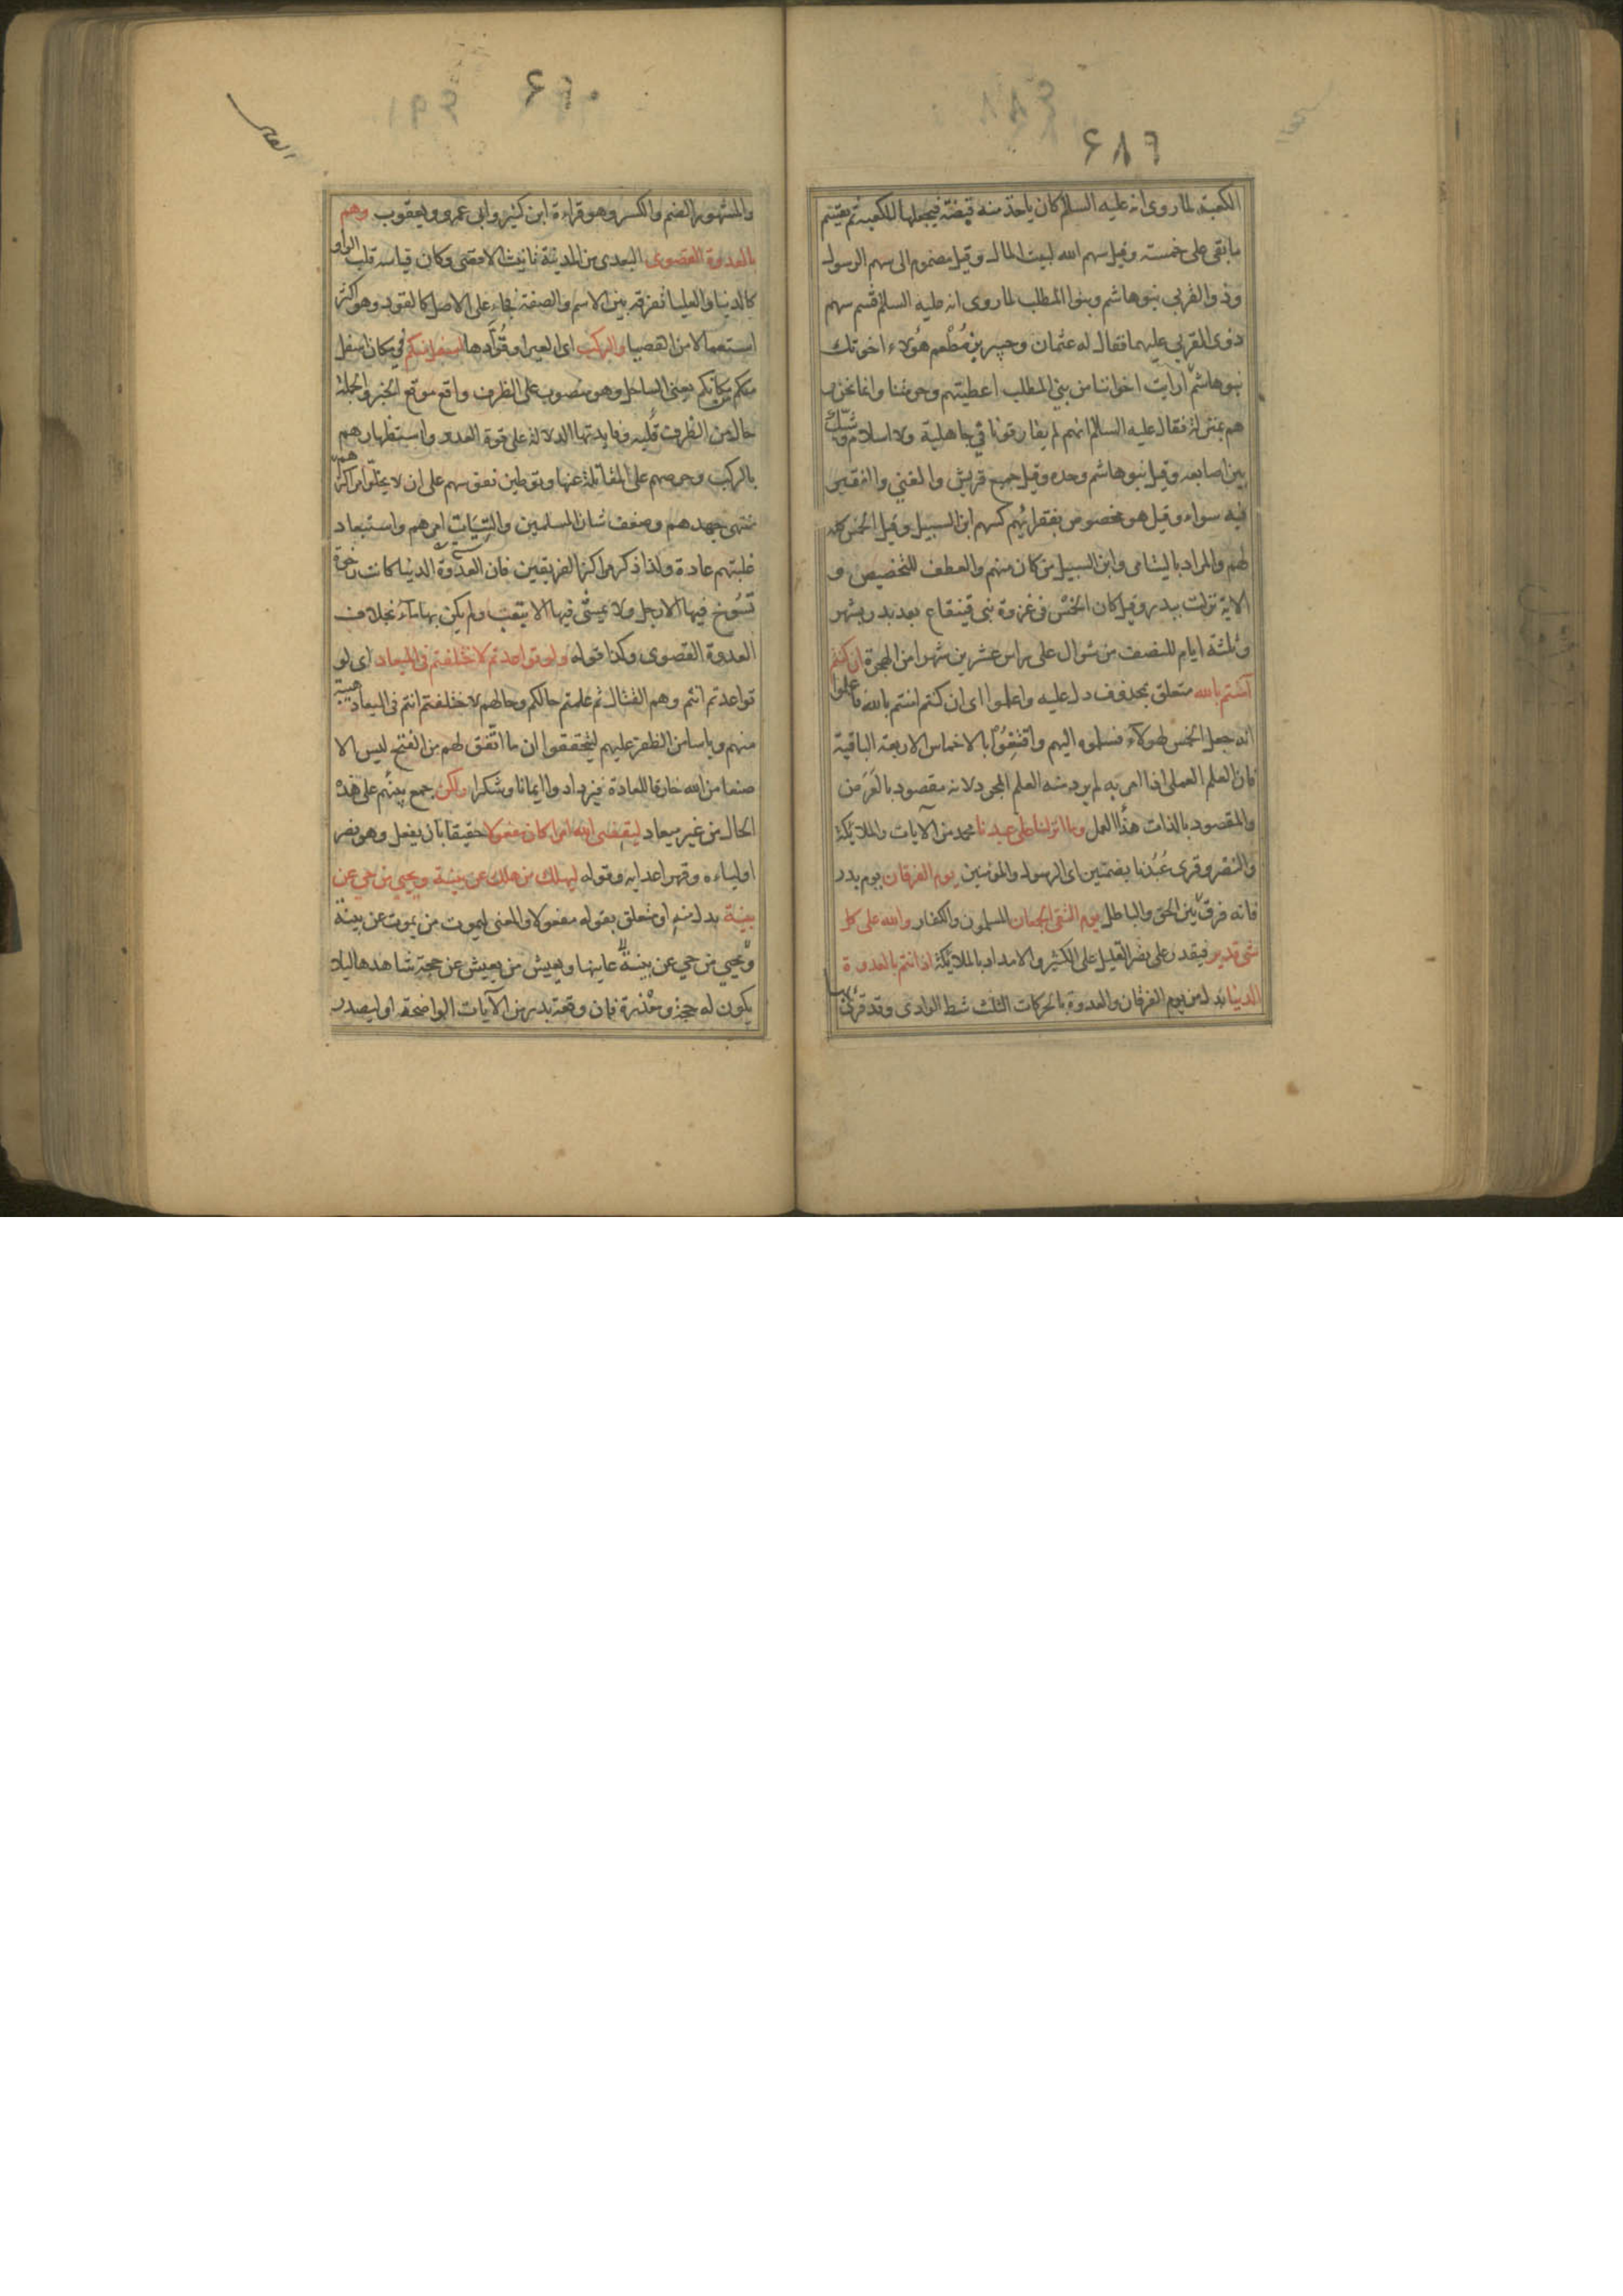 ٤٨٩
الكعبة لما روى انه عليه السلام كان ياخذ منه قبضة فيجعلها للكعبة ثم يقسم
ما بقى على خمسته وقيل سهم الله لبيت المال وقيل مضموم الى سهم الرسول
وذوا القربى بنو هاشم وبنوا المطلب لما روى انه عليه السلام قسم سهم
ذوى القربى عليهما فقال له عثمان وجبير بن مُطْعم هؤلاء اخوتك
بنو هاشم ارايت اخواننا من بنى المطلب اعطيتهم وحرمتنا وانما نحن و
هم بمنزلة فقال عليه السلام انهم لم يفارقونا فى جاهلية ولا اسلام وشبّك
بين اصابعه وقيل بنو هاشم وحده وقيل جميع قريش والغنى والفقير
فيه سواء وقيل هو مخصوص بفقرائهم كسهم ابن السبيل وقيل الخمس كله
لهم والمراد باليتامى وابن السبيل من كان منهم والعطف للتخصيص و
الاية نزلت ببدر وقيل كان الخمس فى غزوة بنى قينقاع بعد بدر بشهر
وثلثة ايام للنصف من شوال على راس عشرين شهرا من الهجرة ان كنتم
آمنتم بالله متعلق بمحذوف دل عليه واعلموا اى ان كنتم امنتم بالله فاعلموا
انه جعل الخمس لهؤلاء فسلموه اليهم واقنِعُوْا بالاخماس الاربعة الباقية
فان العلم العملى اذا امر به لم يرد منه العلم المجرد لانه مقصود بالعَرَض
والمقصود بالذات هذا العمل وما انزلنا على عبدنا محمد من الآيات والملائكة
والنصر وقرى عُبُدنا بضمتين اى الرسول والمؤمنين يوم الفرقان يوم بدر
فانه فرق بين الحق والباطل يوم التقى الجمعان المسلمون والكفار والله على كل
شى قدير فيقدر على نصر القليل على الكثير والامداد بالملائكة اذ انتم بالعدوة
الدنيا بدل من يوم الفرقان والعدوة بالحركات الثلث شط الوادى وقد قرئ بها
والمشهور الضم والكسر وهو قراءة ابن كثير وابى عمرو ويعقوب وهم
بالعدوة القصوى البعدى من المدينة تانيث الاقصى وكان قياسه قلب الواو
كالدنيا والعليا تفرقة بين الاسم والصفة فجاء على الاصل كالقود وهو اكثر
استعمالا من القصيا والركب اى العير او قُوّادها اسفل منكم فى مكان اسفل
منكم مكانكم يعنى الساحل وهو منصوب على الظرف واقع موقع الخبر والجملة
حال من الظرف قُبليه وفايدتها الدلالة على قوة العدو واستظهارهم
بالركب وحرصهم على المقاتلة عنها وتوطين نفوسهم على ان لا يخلّوا مراكزهم
منتهى جهدهم وضعف شان المسلمين والتياث امرهم واستبعاد
غلبتهم عادة ولذا ذكر مراكز الفريقين فان العدوة الدنيا كانت رخوة
تسُوخ فيها الارجل ولا يمشى فيها الا بتعب ولم يكن بها ماء بخلاف
العدوة القصوى وكذا قوله ولو تواعدتم لاختلفتم فى الميعاد اى لو
تواعدتم انتم وهم القتال ثم علمتم حالكم وحالهم لاختلفتم انتم فى الميعاد هيبة
منهم وياسا من الظفر عليهم ليتحققوا ان ما اتّفق لهم من الفتح ليس الا
صنعا من الله خارقا للعادة فيزدادوا ايمانا وشكرا ولكن جمع بينهم على هذه
الحال من غير ميعاد ليقضى الله امرا كان مفعولا حقيقا بان يفعل وهو نصر
اولياءه وقهر اعدايه وقوله ليهلك من هلك عن بينة ويحيى من حى عن
بينة بدل منه او متعلق بقوله مفعولا والمعنى ليموت من يموت عن بينة
ويحيى من حى عن بينة عاينها ويعيش من يعيش عن حجة شاهدها ليلا
يكون له حجة ومعذرة فان وقعة بدر من الآيات الواضحة او ليصدر